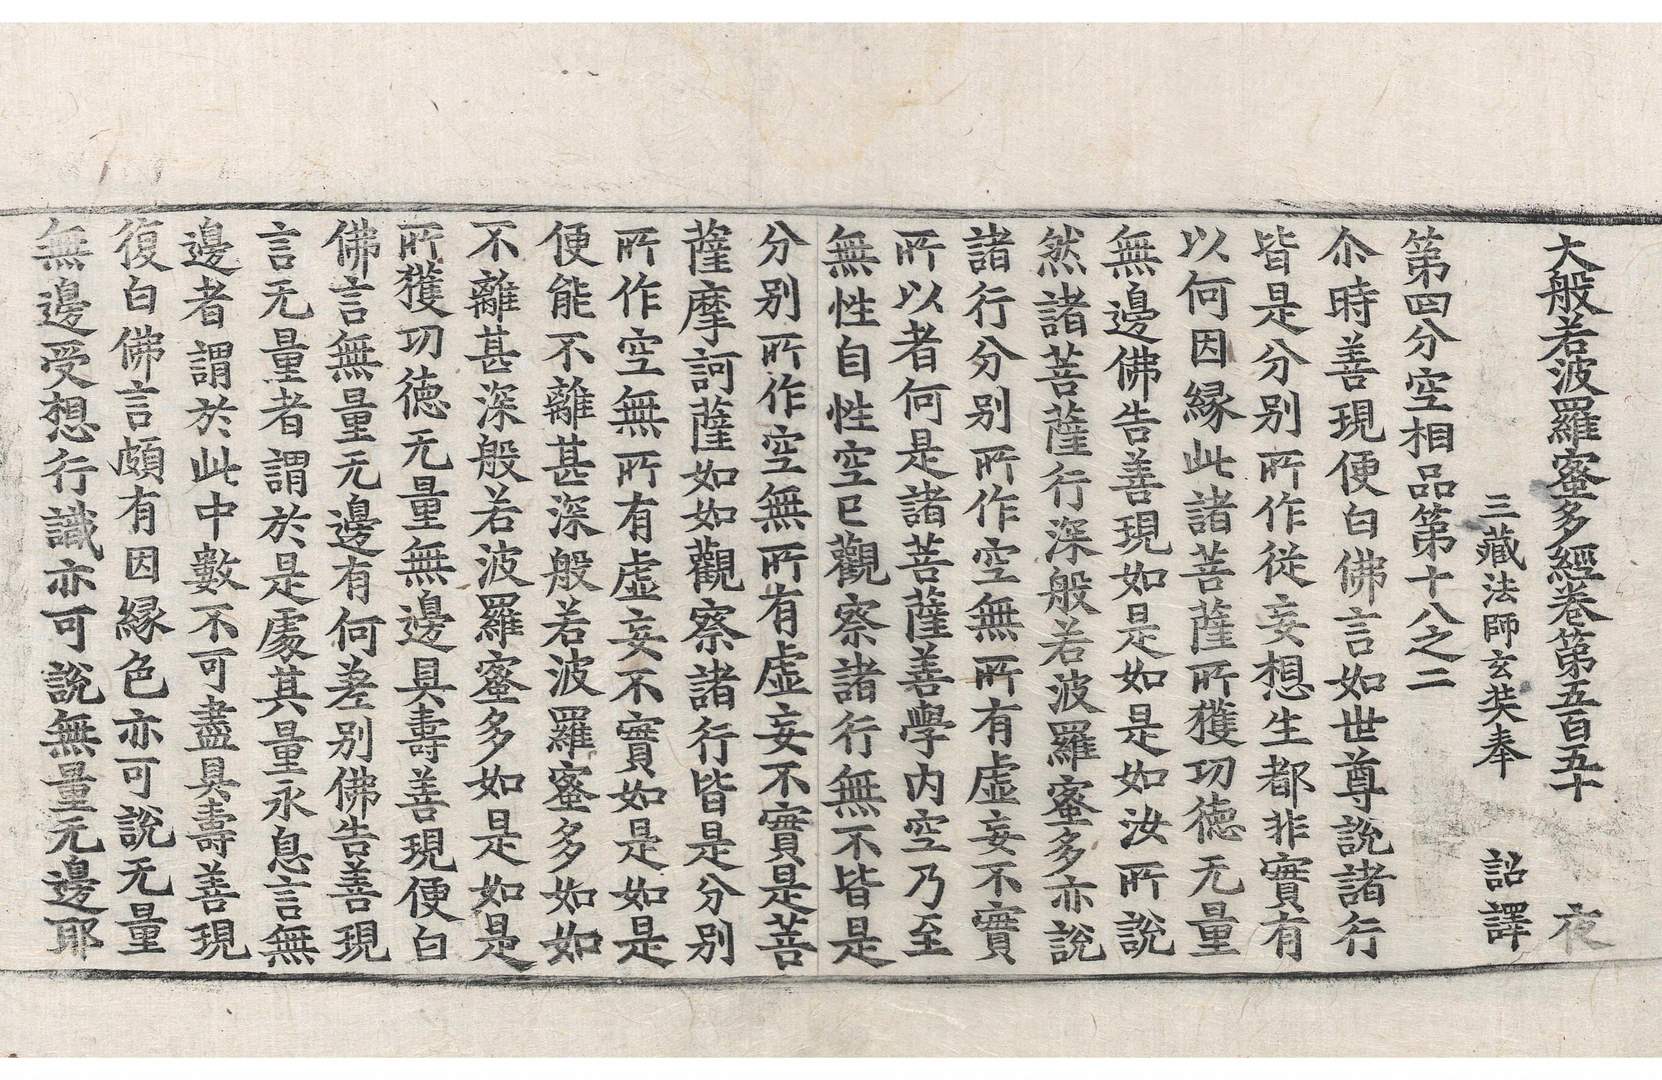 大般若波羅蜜多經卷第五百五十　夜
三藏法師玄奘奉　詔譯
第四分空相品第十八之二
尒時善現便白佛言如世尊說諸行
皆是分別所作從妄想生都非實有
以何因緣此諸菩薩所獲功德无量
無邊佛告善現如是如是如汝所說
然諸菩薩行深般若波羅蜜多亦說
諸行分別所作空無所有虛妄不實
所以者何是諸菩薩善學内空乃至
無性自性空已觀察諸行無不皆是
分別所作空無所有虛妄不實是菩
薩摩訶薩如如觀察諸行皆是分別
所作空無所有虛妄不實如是如是
便能不離甚深般若波羅蜜多如如
不離甚深般若波羅蜜多如是如是
所獲功德无量無邊具壽善現便白
佛言無量无邊有何差別佛告善現
言无量者謂於是處其量永息言無
邊者謂於此中數不可盡具壽善現
復白佛言頗有因緣色亦可說无量
無邊受想行識亦可說無量无邊耶